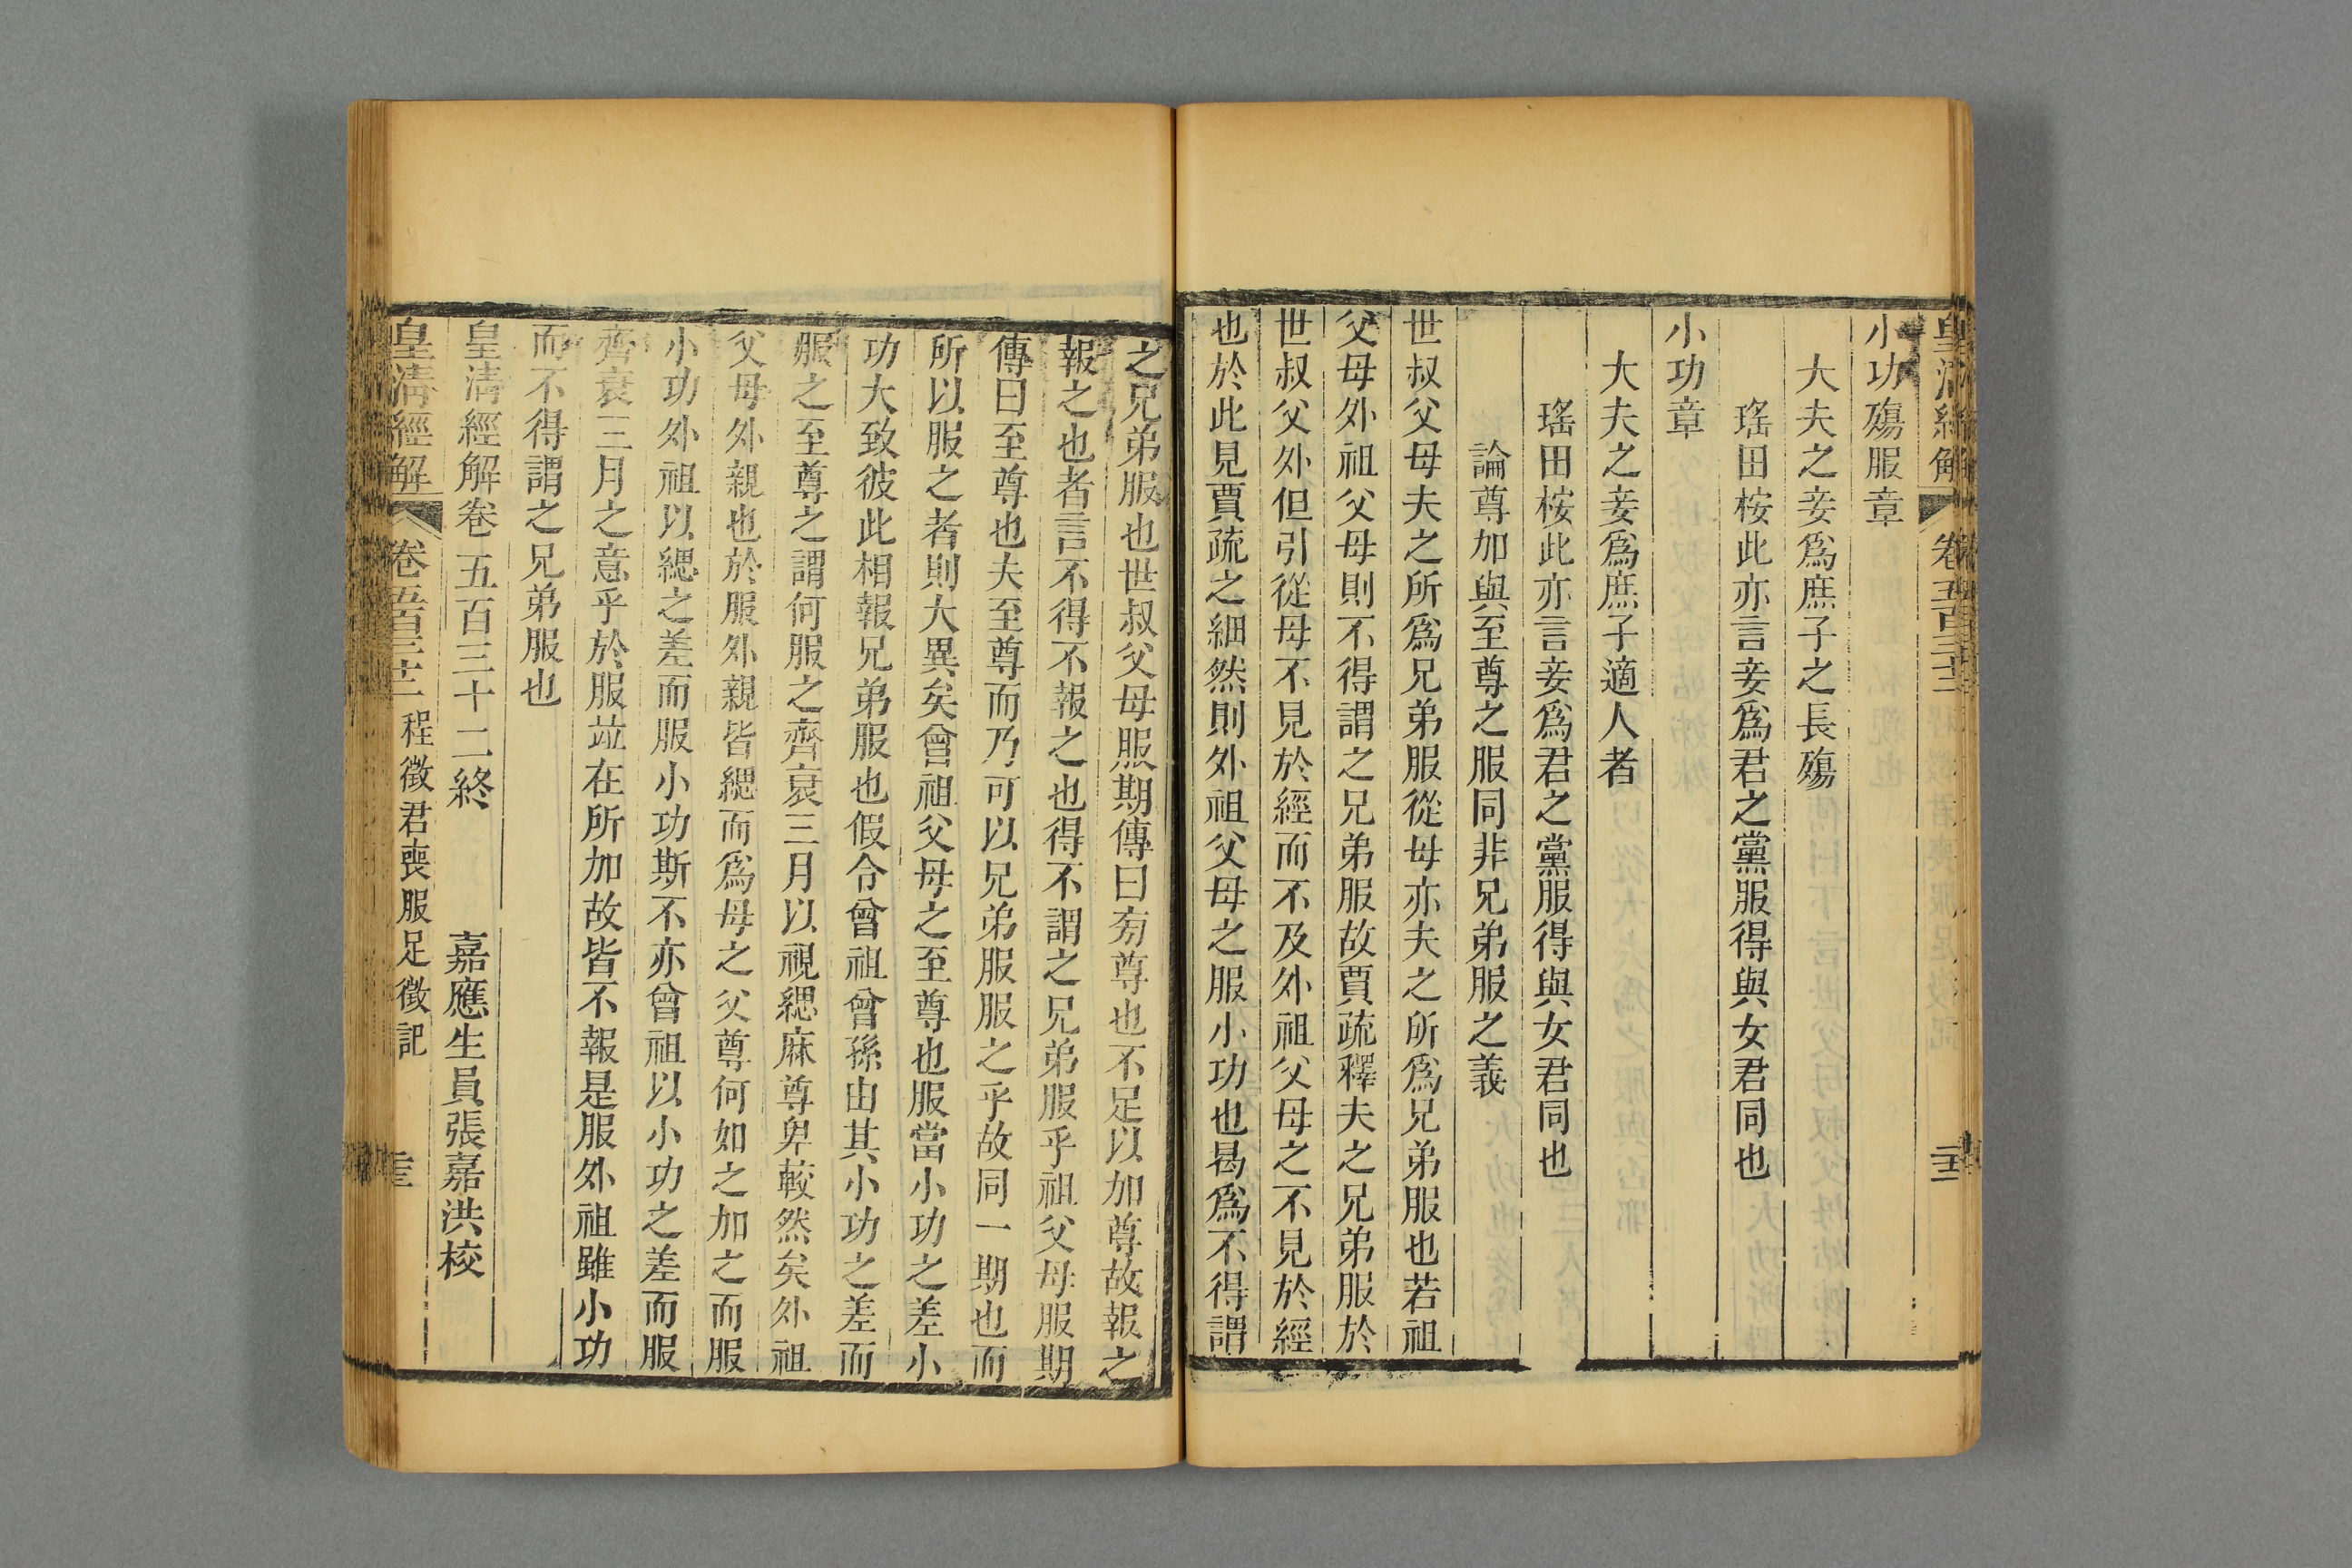 皇清經解 卷五百三十二
小功殤服章
大夫之妾爲庶子之長殤
瑤田桉此亦言妾爲君之黨服得與女君同也
小功章
大夫之妾爲庶子適人者
瑤田桉此亦言妾爲君之黨服得與女君同也
論尊加與至尊之服同非兄弟服之義
世叔父母夫之所爲兄弟服從母亦夫之所爲兄弟服也若祖
父母外祖父母則不得謂之兄弟服故賈疏釋夫之兄弟服於
世叔父外但引從母不見於經而不及外祖父母之不見於經
也於此見賈疏之細然則外祖父母之服小功也曷爲不得謂
之兄弟服也世叔父母服期傳曰旁尊也不足以加尊故報之
報之也者言不得不報之也得不謂之兄弟服乎祖父母服期
傳曰至尊也夫至尊而乃可以兄弟服服之乎故同一期也而
所以服之者則大異矣曾祖父母之至尊也服當小功之差小
功大致彼此相報兄弟服也假令曾祖曾孫由其小功之差而
服之至尊之謂何服之齊衰三月以視緦麻尊卑較然矣外祖
父母外親也於服外親皆緦而爲母之父尊何如之加之而服
小功外祖以緦之差而服小功斯不亦曾祖以小功之差而服
齊衰三月之意乎於服竝在所加故皆不報是服外祖雖小功
而不得謂之兄弟服也
皇清經解卷五百三十二終 嘉應生員張嘉洪校
皇清經解 卷五百三十二 程徵君喪服足徵記